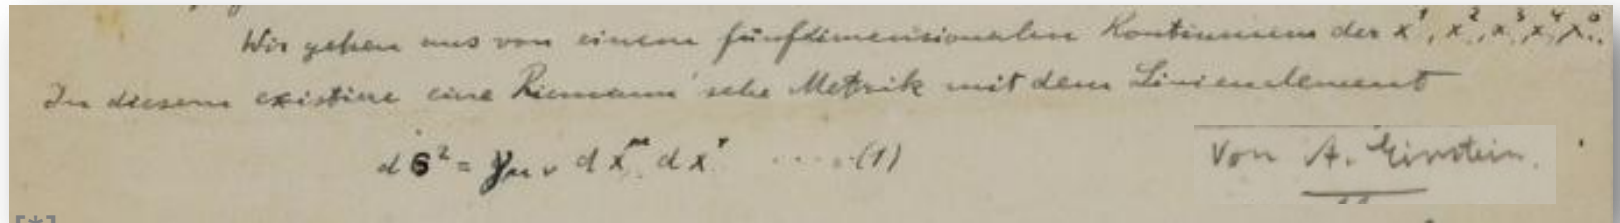 Wir gehen aus von einem fünfdimensionalen Kontinuum der x¹, x², x³, x⁴, x⁰.
In diesem existiere eine Riemann'sche Metrik mit dem Linienelement
dσ² = γμν dx^μ dx^ν ..... (1)
Von A. Einstein.
[*]